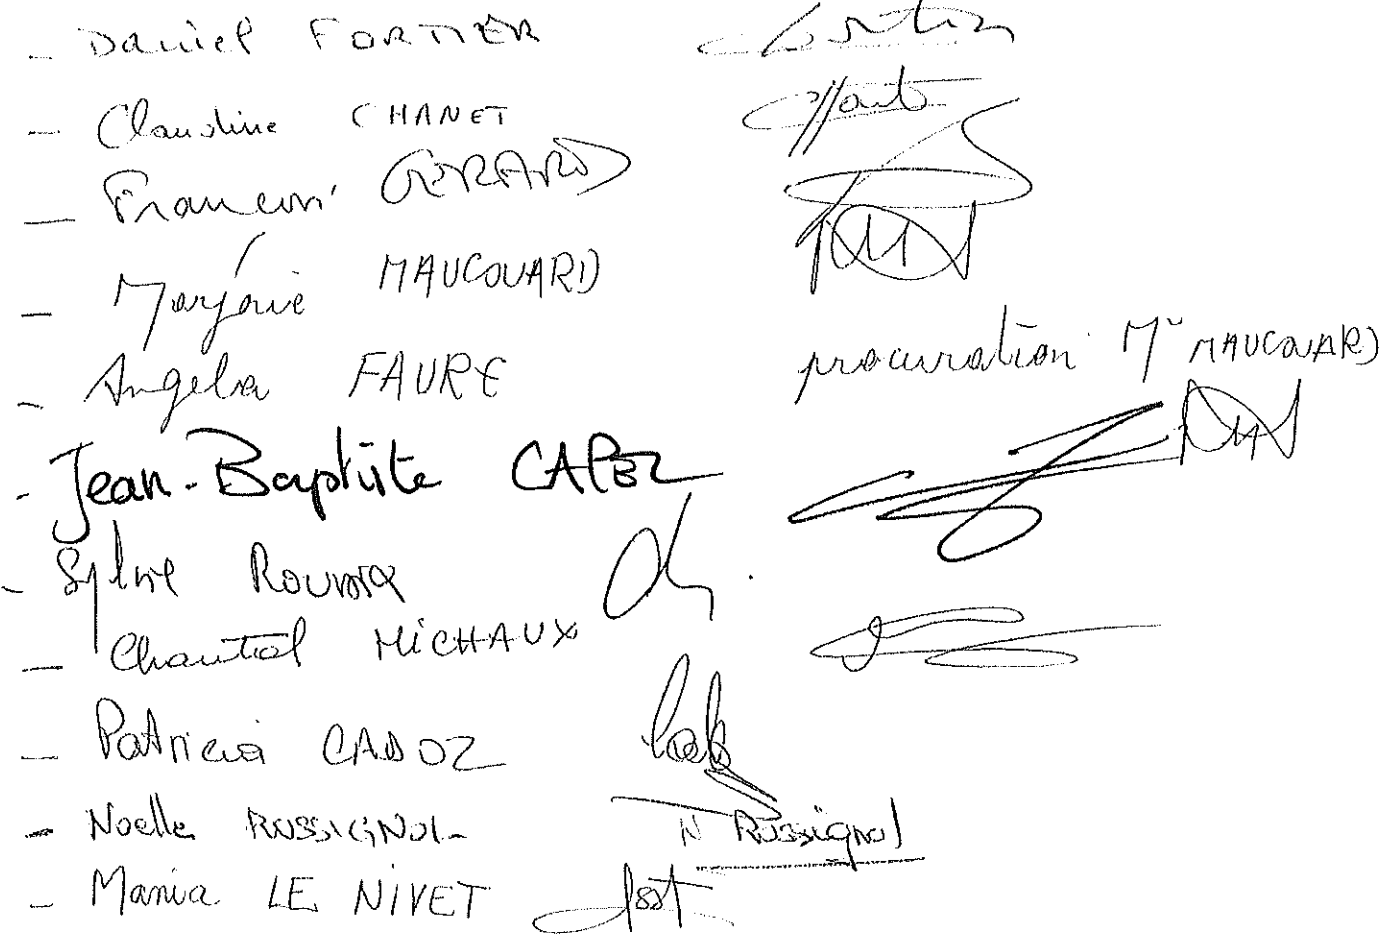 - Daniel FORTIER
- Claudine CHANET
- GERARD
- Marjorie MAUCOUARD
- Angela FAURE procuration Mme MAUCOUARD
- Jean-Baptiste CAPEZ
- Sylvie
- Chantal MICHAUX
- Patricia CADOZ
- Noelle ROSSIGNOL N Rossignol
- Mania LE NIVET